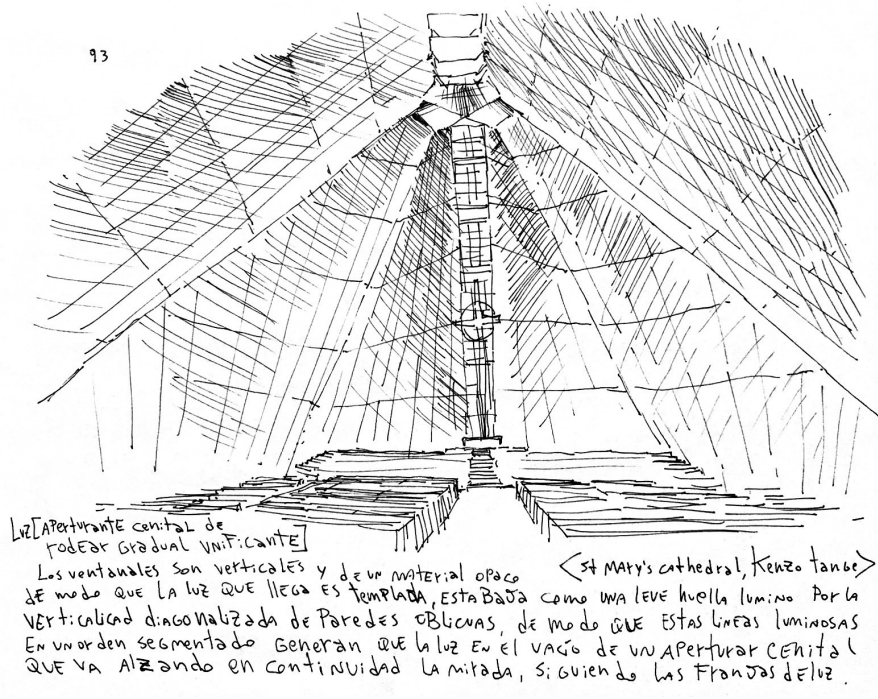 93
Luz[Aperturante cenital de
rodear gradual unificante]
<St Mary's cathedral, Kenzo tange>
Los ventanales son verticales y de un material opaco
de modo que la luz que llega es templada, esta baja como una leve huella lumino por la
verticalicad diagonalizada de paredes oblicuas, de modo que estas lineas luminosas
En un orden segmentado generan que la luz en el vacío de un aperturar cenital
que va alzando en continuidad la mirada, siguiendo las franjas de luz.